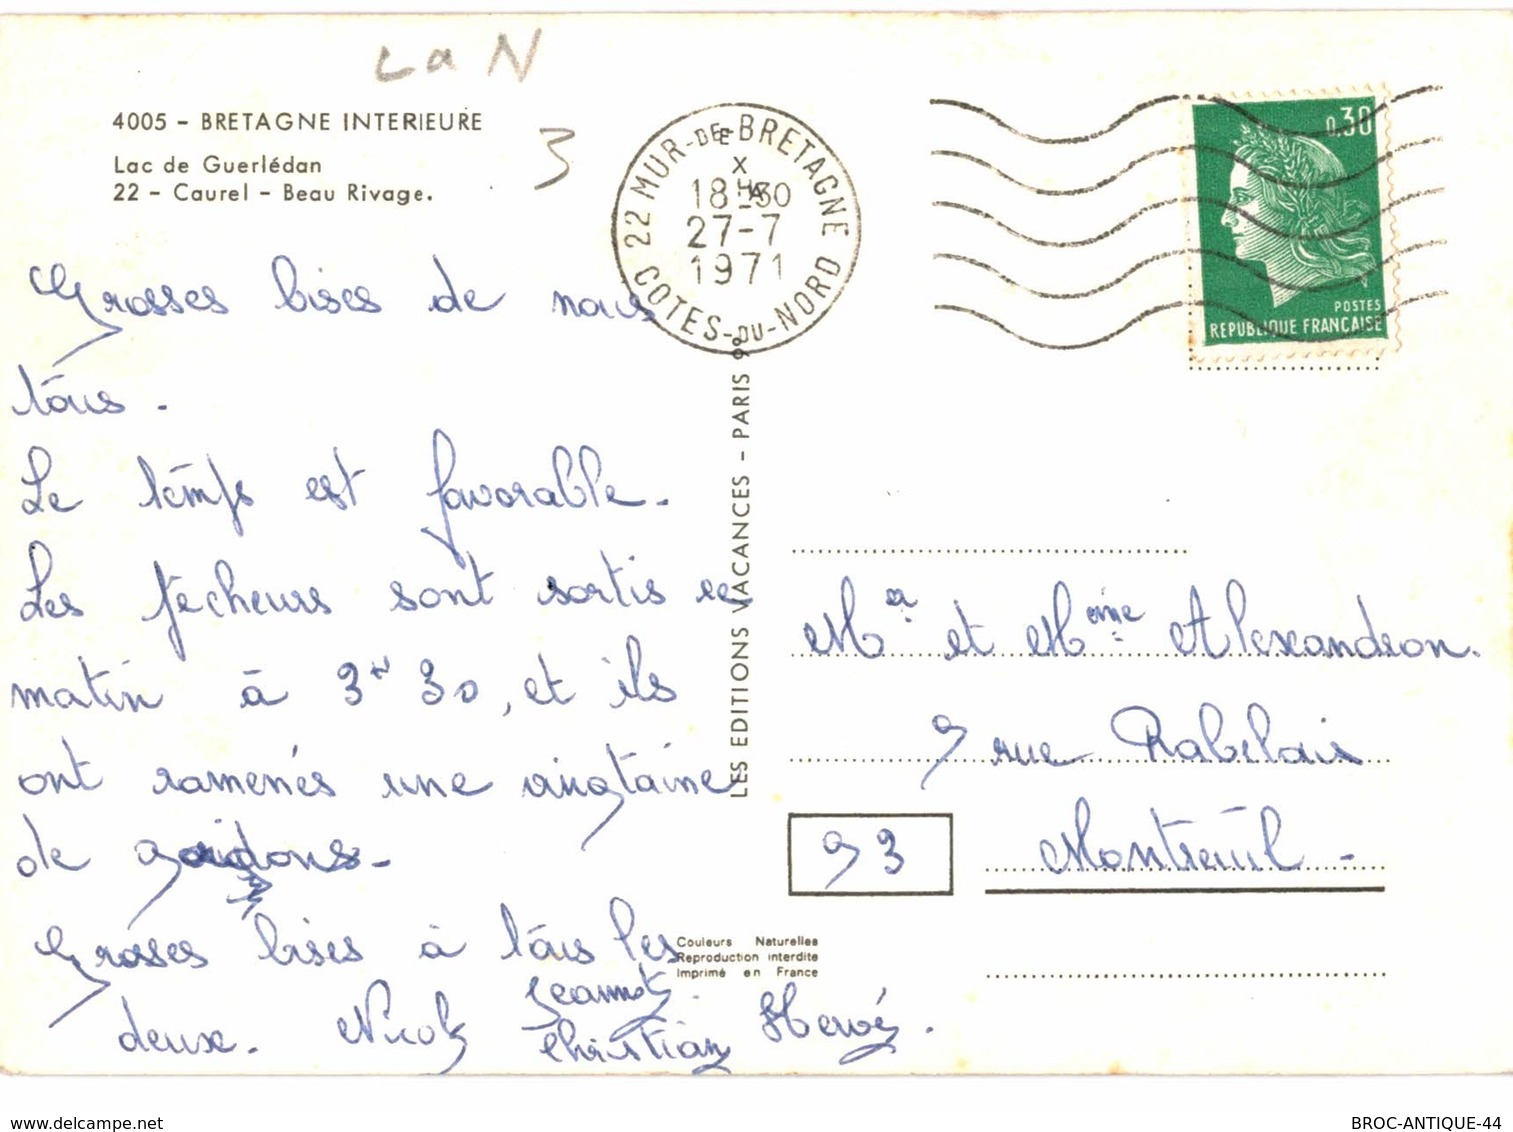 La N
3
4005 - BRETAGNE INTERIEURE
Lac de Guerlédan
22 - Caurel - Beau Rivage.
22 MUR-DE-BRETAGNE
18H30
27-7
1971
COTES-DU-NORD
0,30
POSTES
REPUBLIQUE FRANÇAISE
Grosses bises de nous
tous.
Le temps est favorable.
Les pêcheurs sont sortis ce
matin à 3H 30, et ils
ont ramenés une vingtaine
de gardons.
Grosses bises à tous les
deux. Nicole Jeannot
Christian Hervé.
LES EDITIONS VACANCES - PARIS 9e
Mr et Mme Alexandron.
9 rue Rabelais
93 Montreuil -
Couleurs Naturelles
Reproduction interdite
Imprimé en France
www.delcampe.net
BROC-ANTIQUE-44